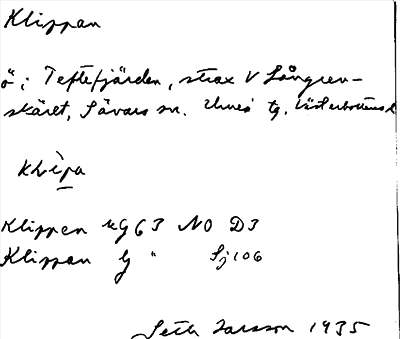 Klippan
ö i Teftefjärden, strax V Långren-
skäret, Sävars sn. Umeå tg. Västerbottens l
klìpa
Klippen kg 63 NO D3
Klippan lg " Sj 106
Seth Larsson 1935